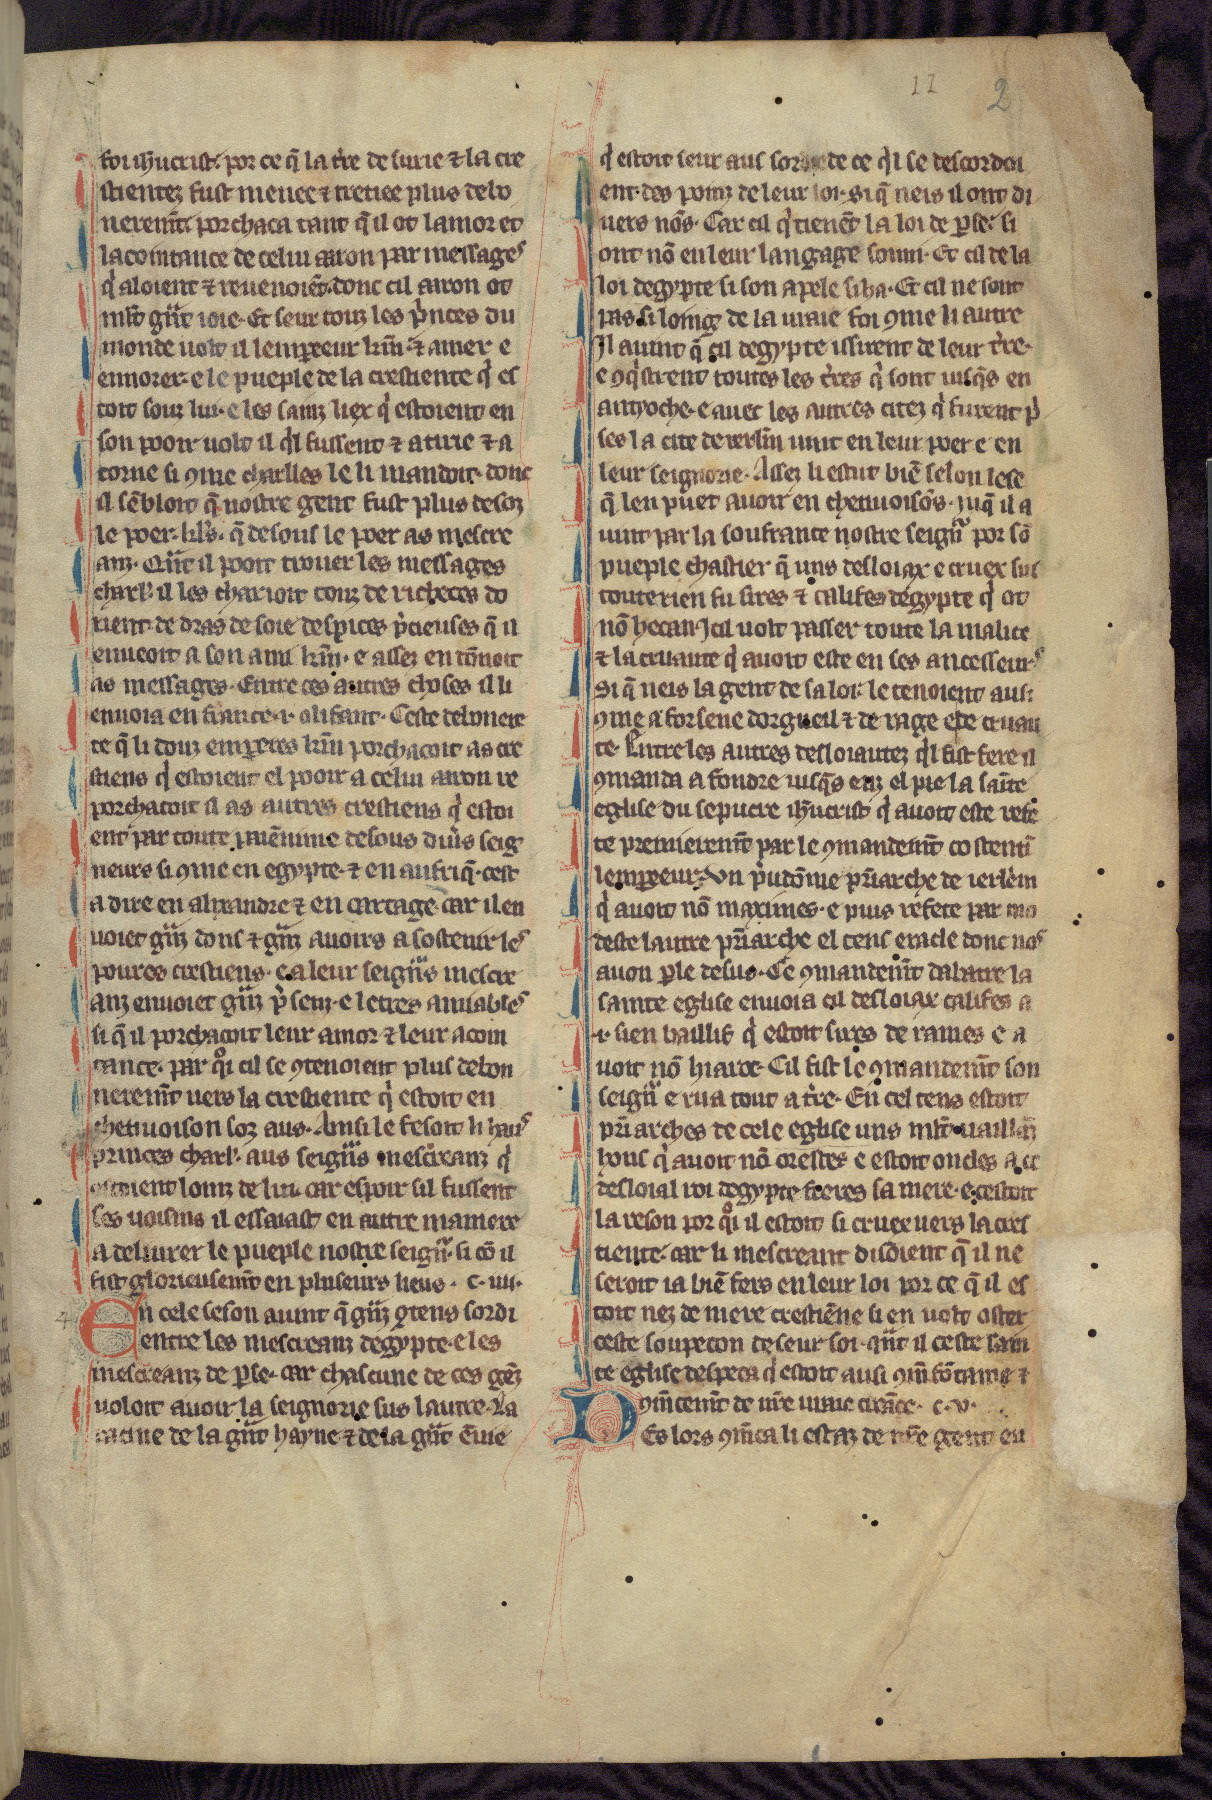 11 2
foi ih̃ucrist. por ce q̃ la t̃re de surie ⁊ la cre
stientez fust menee ⁊ tretiee plus debo
nerem̃t. porchaca tant q̃ il ot lamor et
lacointance de celui aaron par messages
q̓ aloient ⁊ reuenoiẽt. donc cil aaron ot
ml̃t g̃nt ioie. Et seur touz les p̓nces du
monde uolt il lempereur k̃m ⁊ amer e
ennorer. e le pueple de la crestiente q̓ es
toit souz lui. e les sainz liex q̓ estoient en
son pooir uolt il q̓l fussent ⁊ atirie ⁊ a
torne si 9me charlles le li mandoit. donc
il sẽbloit q̃ nostre gent fust plus desoz
le poer. k̃ls. q̃ desouz le poer as mescre
anz. Q̃nt il pooit trouer les messages
charl'. il les charioit touz de richeces do
rient. de dras de soie despices p̓cieuses q̃ il
enueoit a son ami k̃m. e assez en dõnoit
as messages. Entre ces autres choses il li
enuoia en france .i. olifant. Ceste debonere
te q̃ li douz emperes k̃m porchacoit as cre
stiens q̓ estoient el pooir a celui aaron re
porchacoit il as autres crestiens q̓ estoi
ent par toute paiẽnime desous diũs seig
neurs si 9me en egypte. ⁊ en aufriq̃. cest
a dire en alixandre ⁊ en cartage. car il en
uoiet g̃nz dons ⁊ g̃nz auoirs a sostenir les
poures crestiens. e a leur seign̄s mescre
anz enuoiet g̃nz p̓senz. e letres amiables
si q̃ il porchacoit leur amor ⁊ leur acoin
tance. par q̊i cil se 9tenoient plus debon
nerem̃t uers la crestiente q̓ estoit en
chetiuoison soz aus. Ainsi le fesoit li hauz
princes charl'. aus seign̄s mescreanz q̓
estoient loinz de lui. car espoir sil fussent
ses uoisins il essaiast en autre maniere
a deliurer le pueple nostre seign̄. si cõ il
fist glorieusem̃t en pluseurs lieus. c. iiii.
En cele seson auint q̃ g̃nz 9tens sordi
entre les mescreanz degypte. e les
mescreanz de p̱se. car chascune de ces gẽz
uoloit auoir la seignorie sus lautre. La
racine de la g̃nt hayne ⁊ de la g̃nt ẽuie
q̓ estoit seur aus sordoit de ce q̓l se descordoi
ent. des poinz de leur loi. si q̃ neis il ont di
uers nõs. Car cil q̓ tienẽt la loi de p̱se. si
ont nõ en leur langage sonni. Et cil de la
loi degypte si son apele siha. Et cil ne sont
pas si loing de la uraie foi 9me li autre
Il auint q̃ cil degypte issirent de leur t̃re.
e 9q̓strent toutes les t̃res q̓ sont iusq̃s en
antyoche. e auec les autres citez q̓ furent p̓
ses la cite de ierl̃m uint en leur poer e en
leur seignorie. Assez li estuit biẽ selon lese
q̃ len puet auoir en chetiuoisõs. Iuq̃ il a
uint par la soufrance nostre seign̄ por sõ
pueple chastier q̃ uns desloiax e cruex sus
toute rien fu sires ⁊ califes degypte q̓ ot
nõ hecan. Icil uolt passer toute la malice
⁊ la cruaute q̓ auoit este en ses ancesseurs
Si q̃ neis la gent de sa loi. le tenoient ausi
9me a forsene dorgueil ⁊ de rage e de cruau
te. Entre les autres desloiautez q̓l fist fere il
9manda a fondre iusq̃s enz el pie la saĩte
eglise du sepucre ih̃ucrist q̓ auoit este refe
te premierem̃t par le 9mandem̃t costentĩ
lempereur. Un p̓udõme pr̃iarche de ierl̃em
q̓ auoit nõ maximes. e puis refete par mo
deste lautre pr̃iarche el tens eracle donc nos
auon p̱le desus. Ce 9mandem̃t dabatre la
sainte eglise enuoia cil desloiax califes a
.i. sien baillif q̓ estoit sires de rames e a
uoit nõ hiaroc. Cil fist le 9mandem̃t son
seign̄ e rua tout a t̃re. En cel tens estoit
pr̃iarches de cele eglise uns ml̃t uaillãz
hons q̓ auoit nõ orestes e estoit oncles a ce
desloial roi degypte freres sa mere. e cestoit
la reson por q̊i il estoit si cruex uers la cres
tiente. car li mescreant disoient q̃ il ne
seroit ia biẽ fers en leur loi por ce q̃ il es
toit nez de mere crestiẽne si en uolt oster
ceste soupecon deseur soi. q̃nt il ceste sain
te eglise despeca q̓ estoit ausi 9m̃ fõtaine ⁊
9m̃cem̃t de nr̃e uraie creãce. c. v.
Des lors 9m̃ca li estaz de nr̃e gent en